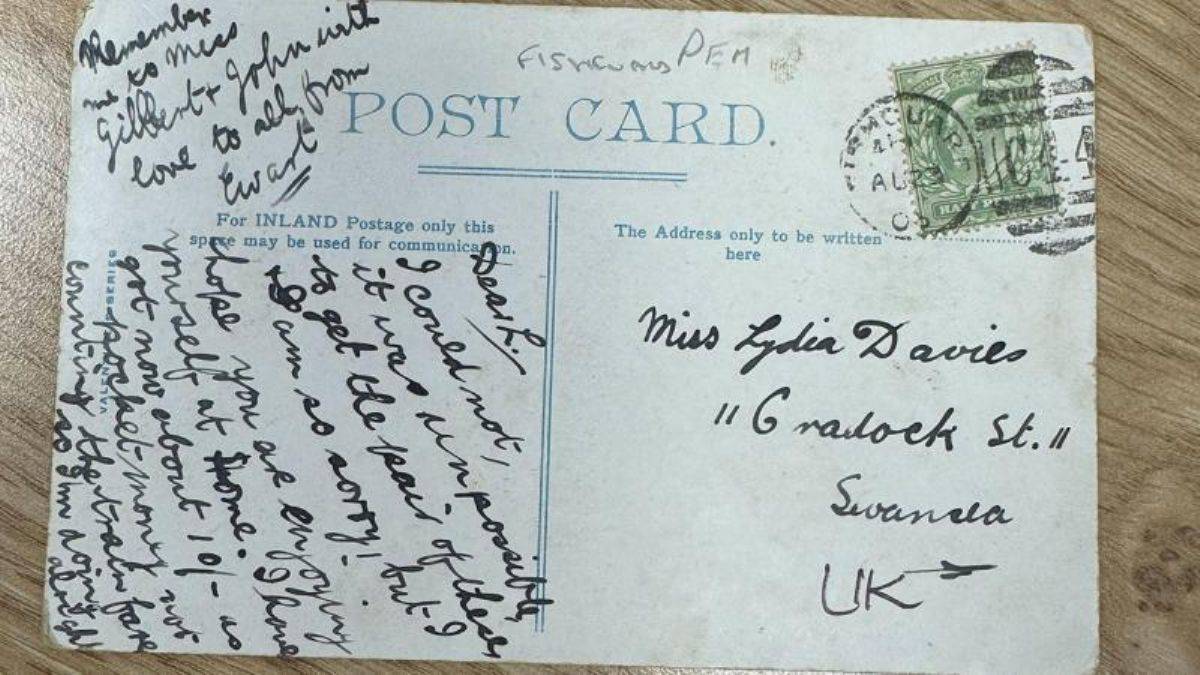 Remember
me to Miss
Gilbert + John with
love to all, from
Ewart
FISHGUARD PEM
POST CARD.
For INLAND Postage only this
space may be used for communication.
The Address only to be written
here
AU 23
Dear L.
I could not,
it was unpossible,
to get the pair of these
I am so sorry, but I
hope you are enjoying
yourself at home. I have
got now about 10/- as
pocket money not
counting the train fare
so I'm doing
alright
Miss Lydia Davies
"Cradock St."
Swansea
UK